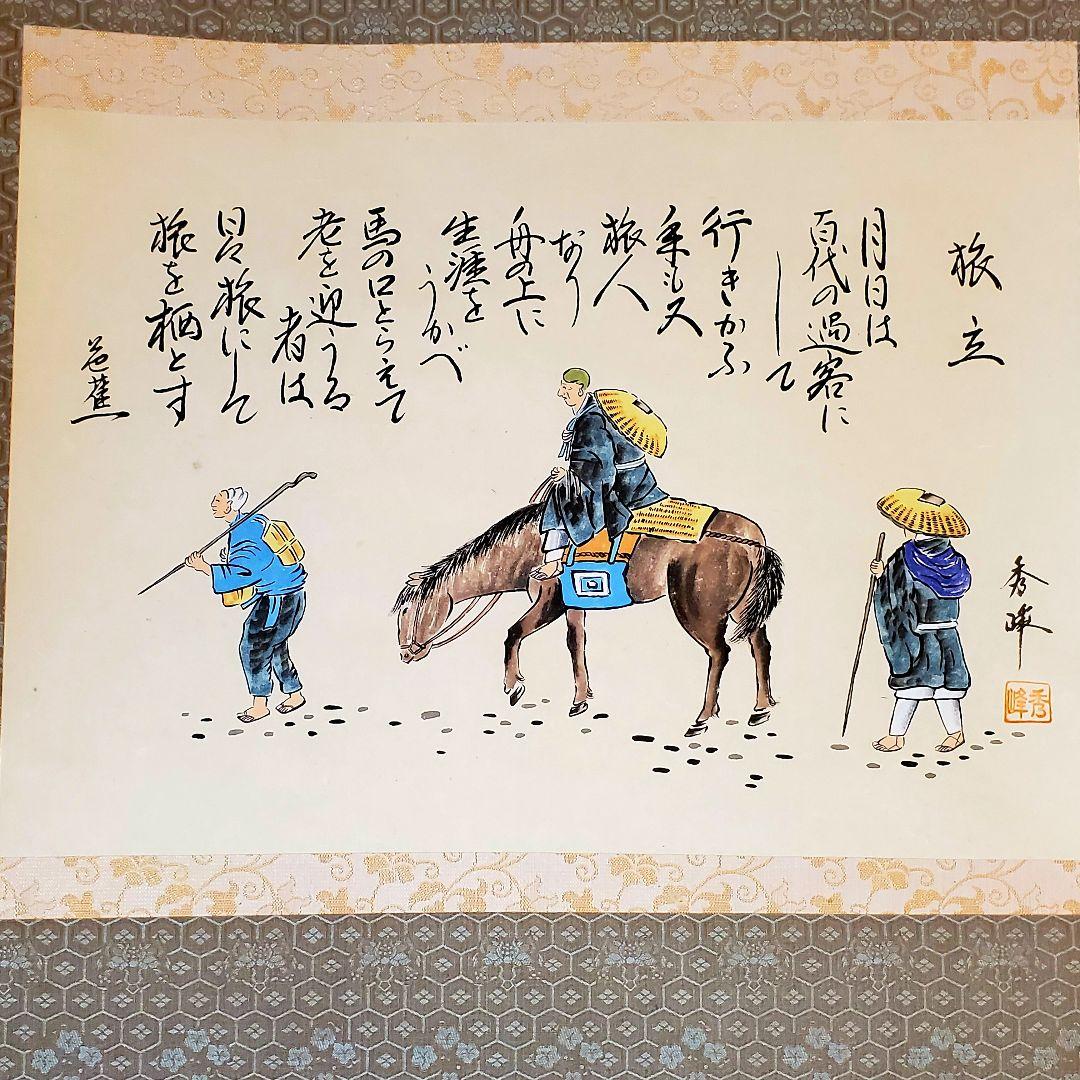 旅立
月日は
百代の過客に
して
行きかふ
年も又
旅人
なり
舟の上に
生涯を
うかべ
馬の口とらえて
老を迎うる
者は
日々旅にして
旅を栖とす
芭蕉
秀峰
秀峰